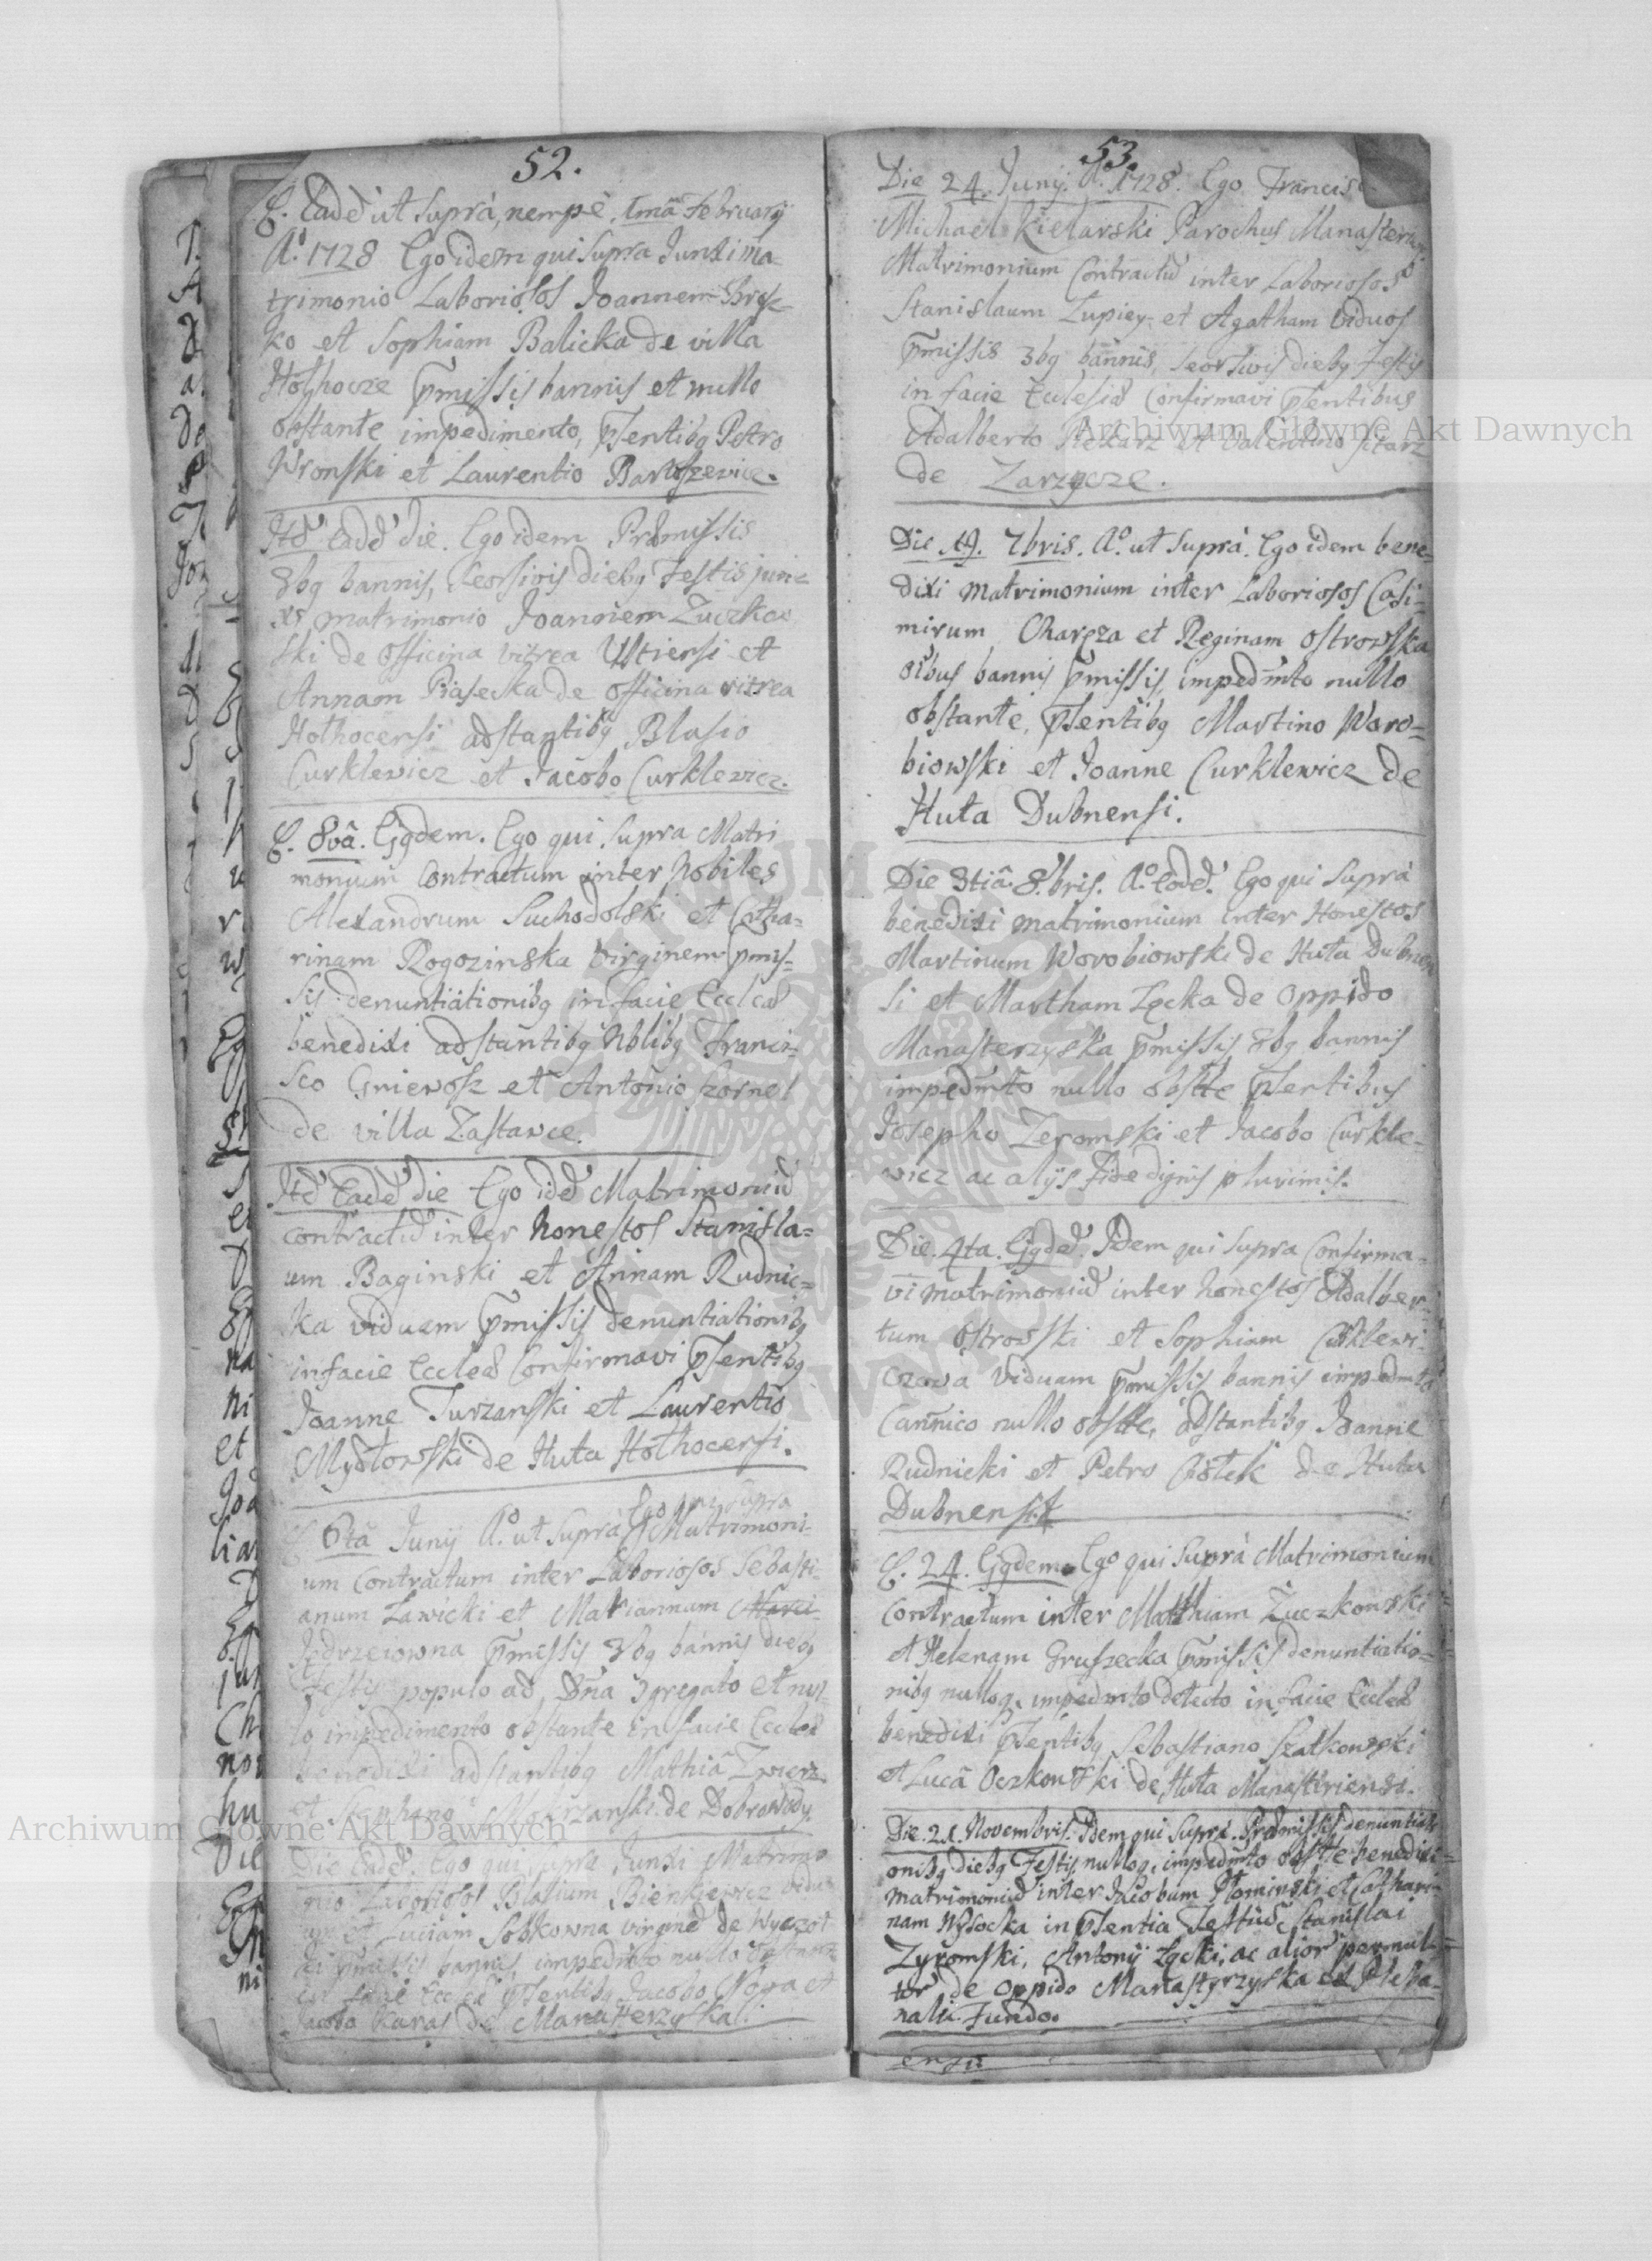 52.
E. Eadē ut suprà, nempè. 1mā February
A.º 1728 Ego idem qui supra Junxi ma-
trimonio Laboriosos Joannem
ko et Sophiam Balicka de villa
Hołhocze p̄missis bannis et nullo
obstante impedimento, p̄sentibg Petro
Wronski et Laurentio Bartoszewicz.
Itē Eadē die. Ego idem Præmissis
3bg bannis, seorsivis diebg Festis junx
xi matrimonio Joannem Zuczkow
ski de officina vitrea et
Annam Piasecka de officina vitrea
Hołhocensi adstantibg Blasio
Curklewicz et Jacobo Curklewicz.
E. 8vā. Ejgdem. Ego qui supra Matri
monium Contractum inter Nobiles
Alexandrum Suchodolski et Catha-
rinam Rogozinska Virginem p̄mis-
sis denuntiationibg in facie Ecclæ
benedixi adstantibg Nblibg Franci-
sco Gniewosz et Antonio Kornel
de villa Zastawce.
Itē Eadē die Ego idē Matrimoniū
contractū inter honestos Stanisla-
um Baginski et Annam Rudnic-
ka viduam p̄missis denuntiationibg
in facie Eccleæ Confirmavi p̄sentibg
Joanne Turzanski et Laurentio
Mydłowski de Huta Hołhocensi.
Ego qui supra
6ta Junij A.º ut suprà Matrimoni-
um Contractum inter Laboriosos Sebasti-
anum Ławicki et Mariannam
Jędrzeiowna p̄missis 3bg bannis diebg
Festis populo ad Dīna 9gregato et nul-
lo impedimento obstante in facie Eccleæ
benedixi adstantibg Mathiā Zwierz
et Stephano Mokrzanski de Dobrowody.
Die Eadē. Ego qui supra Junxi Matrimo
nio Laboriosos Blasium Bienkiewicz vidu
um et Luciam Sobkowna virginē de Wyczoł
ki p̄missis bannis, impedmto nullo obstante
in facie Ecclæ p̄sentibg Jacobo Noga et
Jacobo Karas de Manasterzyska.
53.
Die 24. Junij. A.º 1728. Ego Francis
Michael Kielarski Parochus Manasteriens
Matrimonium Contractū inter Laboriosos
Stanislaum Łupiey et Agatham viduos
p̄missis 3bg bannis, seorsivis diebg Festis
in facie Ecclesiæ Confirmavi p̄sentibus
Adalberto Piekarz et Valentino Pisarz
de Zarzycze.
Die 19. 7bris. A.º ut suprà. Ego idem bene-
dixi Matrimonium inter Laboriosos Casi-
mirum Charęza et Reginam Ostrowska
oībus bannis p̄missis, impedmto nullo
obstante, p̄sentibg Martino Woro-
biowski et Joanne Curklewicz de
Huta Dubnensi.
Die 3tiâ 8.bris. A.º Eodē. Ego qui suprà
benedixi matrimonium inter Honestos
Martinum Worobiowski de Huta Dubnen
si et Martham Łęcka de Oppido
Manasterzyska p̄missis 3bg bannis
impedmto nullo obstte p̄sentibus
Josepho Zeromski et Jacobo Curkle-
wicz ac alijs Fide dignis plurimis.
Die. 4ta. Ejgdē. Idem qui supra Confirma-
vi matrimoniū inter honestos Adalber-
tum Ostrowski et Sophiam Curklewi-
czowa Viduam p̄missis bannis impedmto
Cannico nullo obstte, adstantibg Joanne
Rudnicki et Petro Ciołek de Huta
Dubnensi.
E. 24. Ejgdem. Ego qui suprà Matrimonium
Contractum inter Matthiam Zuczkowski
et Helenam Gruszecka p̄missis denuntiatio-
nibg nulloq. impedmto detecto in facie Eccleæ
benedixi p̄sentibg Sebastiano Szatkowski
et Lucā Oczkowski de Huta Manastiriensi.
Die. 21. Novembris. Idem qui suprà. Præmissis denuntiati
onibg diebg Festis, nulloq. impedmto obstte benedixi
Matrimoniū inter Jacobum Płominski et Cathari-
nam Wysocka in p̄sentia Testiū Stanislai
Zyromski, Antonij Łęcki, ac alior permul-
tor de Oppido Manastyrzyska et Pleba-
nali Fundo.
Archiwum Główne Akt Dawnych
Archiwum Główne Akt Dawnych